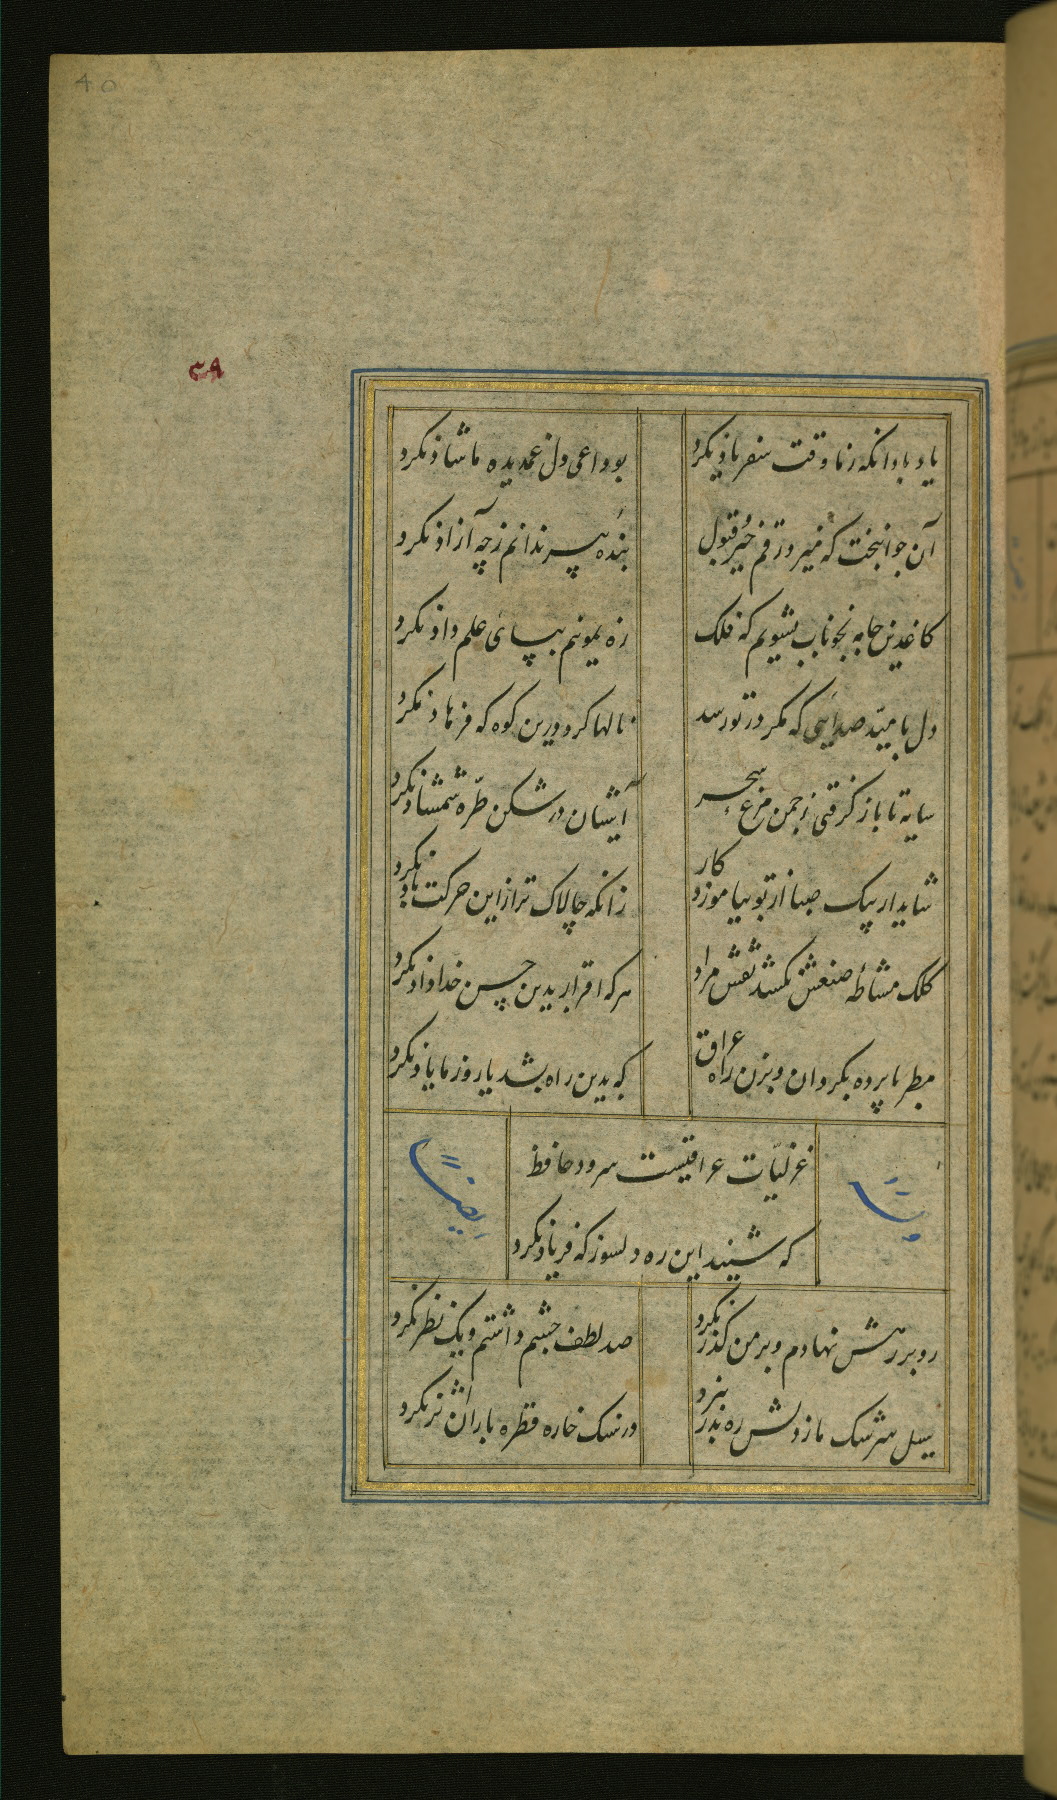 40
۳۹
یاد باد آنکه ز ما وقت سفر یاد نکرد
بوداعی دل غمدیده ما شاد نکرد
آن جوانبخت که میزد رقم خیر قبول
بندهٔ پیر ندانم ز چه آزاد نکرد
کاغذین جامه بخوناب بشویم که فلک
ره نمونیم بپای علم داد نکرد
دل بامید صدایی که مگر در تو رسد
نالها کرد درین کوه که فرهاد نکرد
سایه تا باز گرفتی ز چمن مرغ سحر
آشیان در شکن طرّه شمشاد نکرد
شاید ار پیک صبا از تو بیاموزد کار
زانکه چالاک‌تر از این حرکت باد نکرد
کلک مشاطهٔ صنعش نکشد نقش مراد
هر که اقرار بدین حسن خداداد نکرد
مطربا پرده بگردان و بزن راه عراق
که بدین راه بشد یار و ز ما یاد نکرد
غزلیّات عراقیست سرود حافظ
که شنید این ره دلسوز که فریاد نکرد
وله
ایضاً
رو بر رهش نهادم و بر من گذر نکرد
صد لطف چشم داشتم و یک نظر نکرد
سیل سرشک ما ز دلش ره بدر نبرد
در سنگ خاره قطره باران اثر نکرد